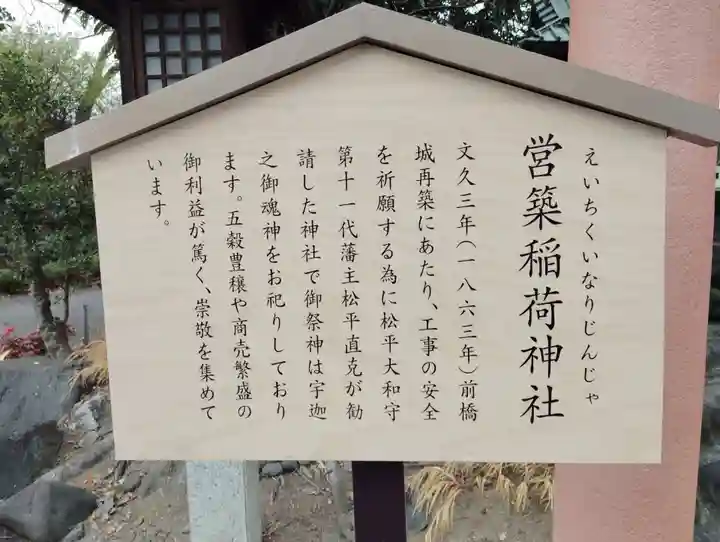 えいちくいなりじんじゃ
営築稲荷神社
文久三年(一八六三年)前橋
城再築にあたり、工事の安全
を祈願する為に松平大和守
第十一代藩主松平直克が勧
請した神社で御祭神は宇迦
之御魂神をお祀りしており
ます。五穀豊穣や商売繁盛の
御利益が篤く、崇敬を集めて
います。